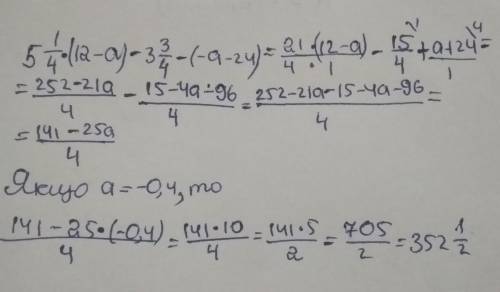 5 1/4 · (12-a) - 3 3/4 - (-a-24) = 21/4 · (12-a)/1 - 15/4 + (a+24)/1 =
= (252-21a)/4 - (15-4a-96)/4 = (252-21a-15-4a-96)/4 =
= (141-25a)/4
Якщо a=-0,4, то
(141-25·(-0,4))/4 = (141·10)/4 = (141·5)/2 = 705/2 = 352 1/2